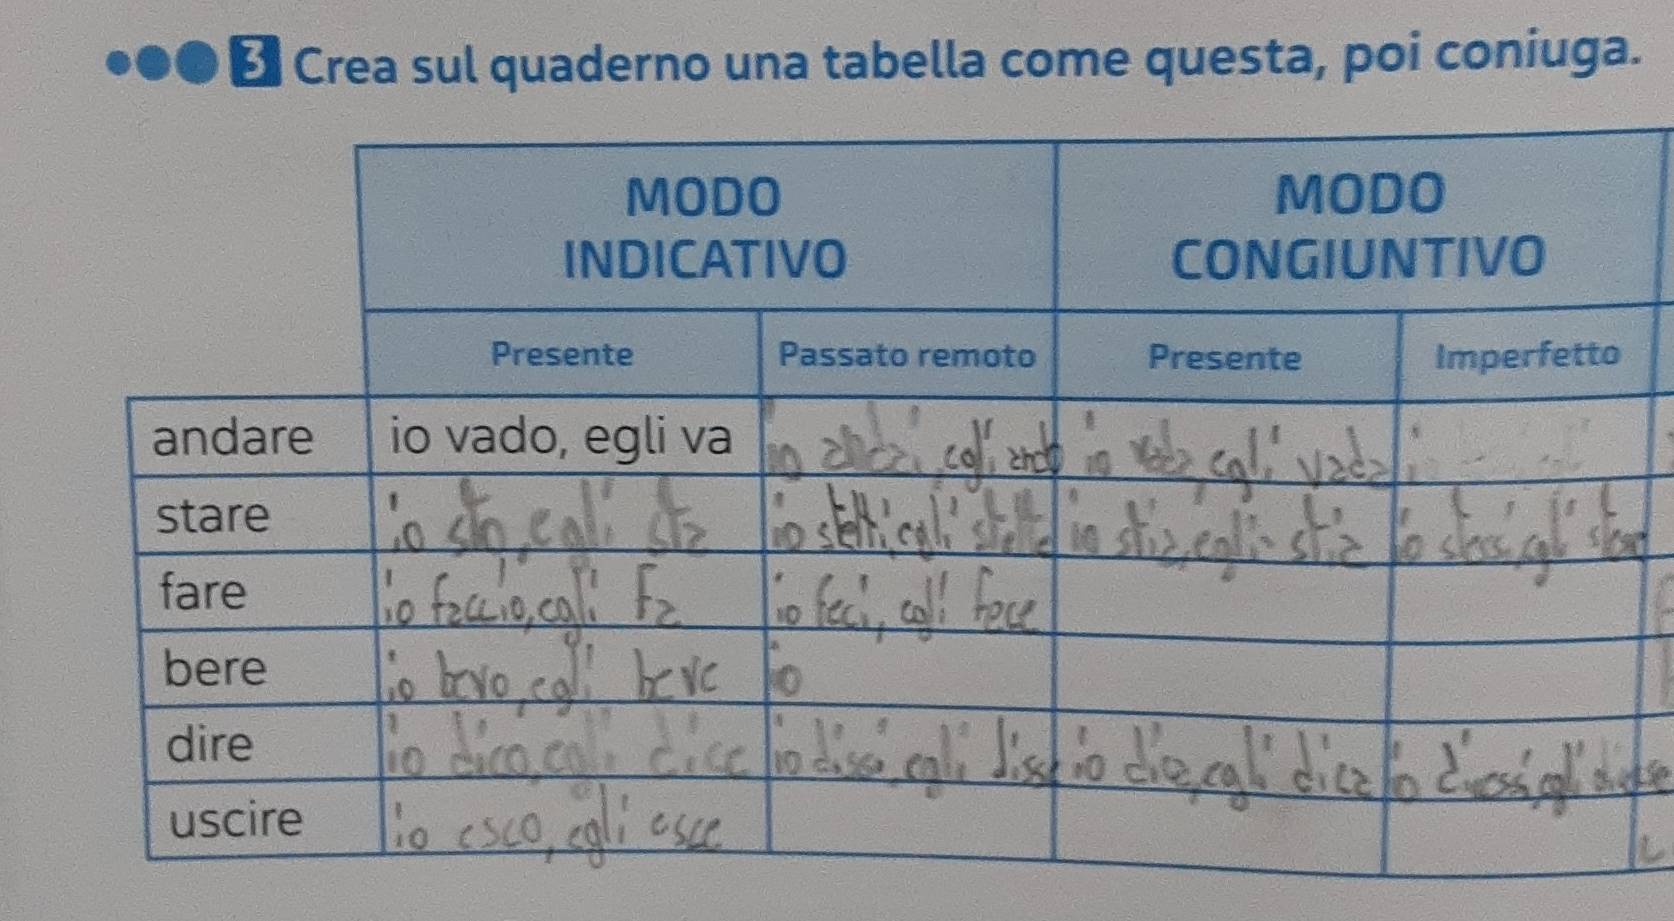 3 Crea sul quaderno una tabella come questa, poi coniuga.
MODO INDICATIVO
MODO CONGIUNTIVO
Presente Passato remoto Presente Imperfetto
andare io vado, egli va io andai, egli andò io vada egli vada
stare io sto, egli sta io stetti, egli stette io stia, egli stia io stessi, egli
fare io faccio, egli fa io feci, egli fece
bere io bevo, egli beve io
dire io dico, egli dice io dissi, egli disse io dica, egli dica io dicessi, egli
uscire io esco, egli esce